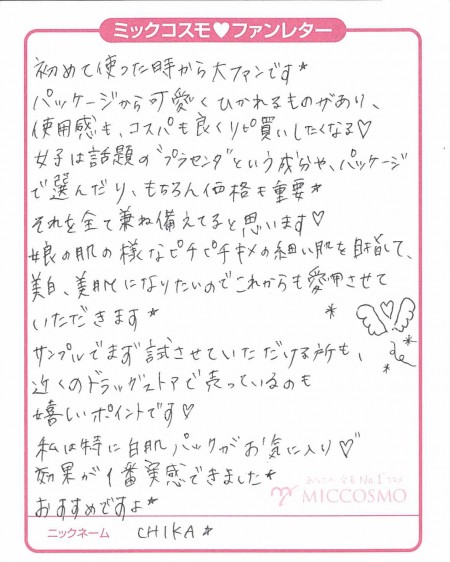 ミックコスモ♥ファンレター
初めて使った時から大ファンです*
パッケージから可愛くひかれるものがあり、
使用感も、コスパも良くリピ買いしたくなる♡
女子は話題の"プラセンタ"という成分や、パッケージ
で選んだり、もちろん価格も重要*
それを全て兼ね備えてると思います♡
娘の肌の様なピチピチキメの細い肌を目指して、
美白、美肌になりたいのでこれからも愛用させて
いただきます*
サンプルでまず試させていただける所も、
近くのドラッグストアで売っているのも
嬉しいポイントです♡
私は特に白肌パックがお気に入り♡
効果が1番実感できました*
おすすめですよ*
No.1
MICCOSMO
ニックネーム CHIKA*